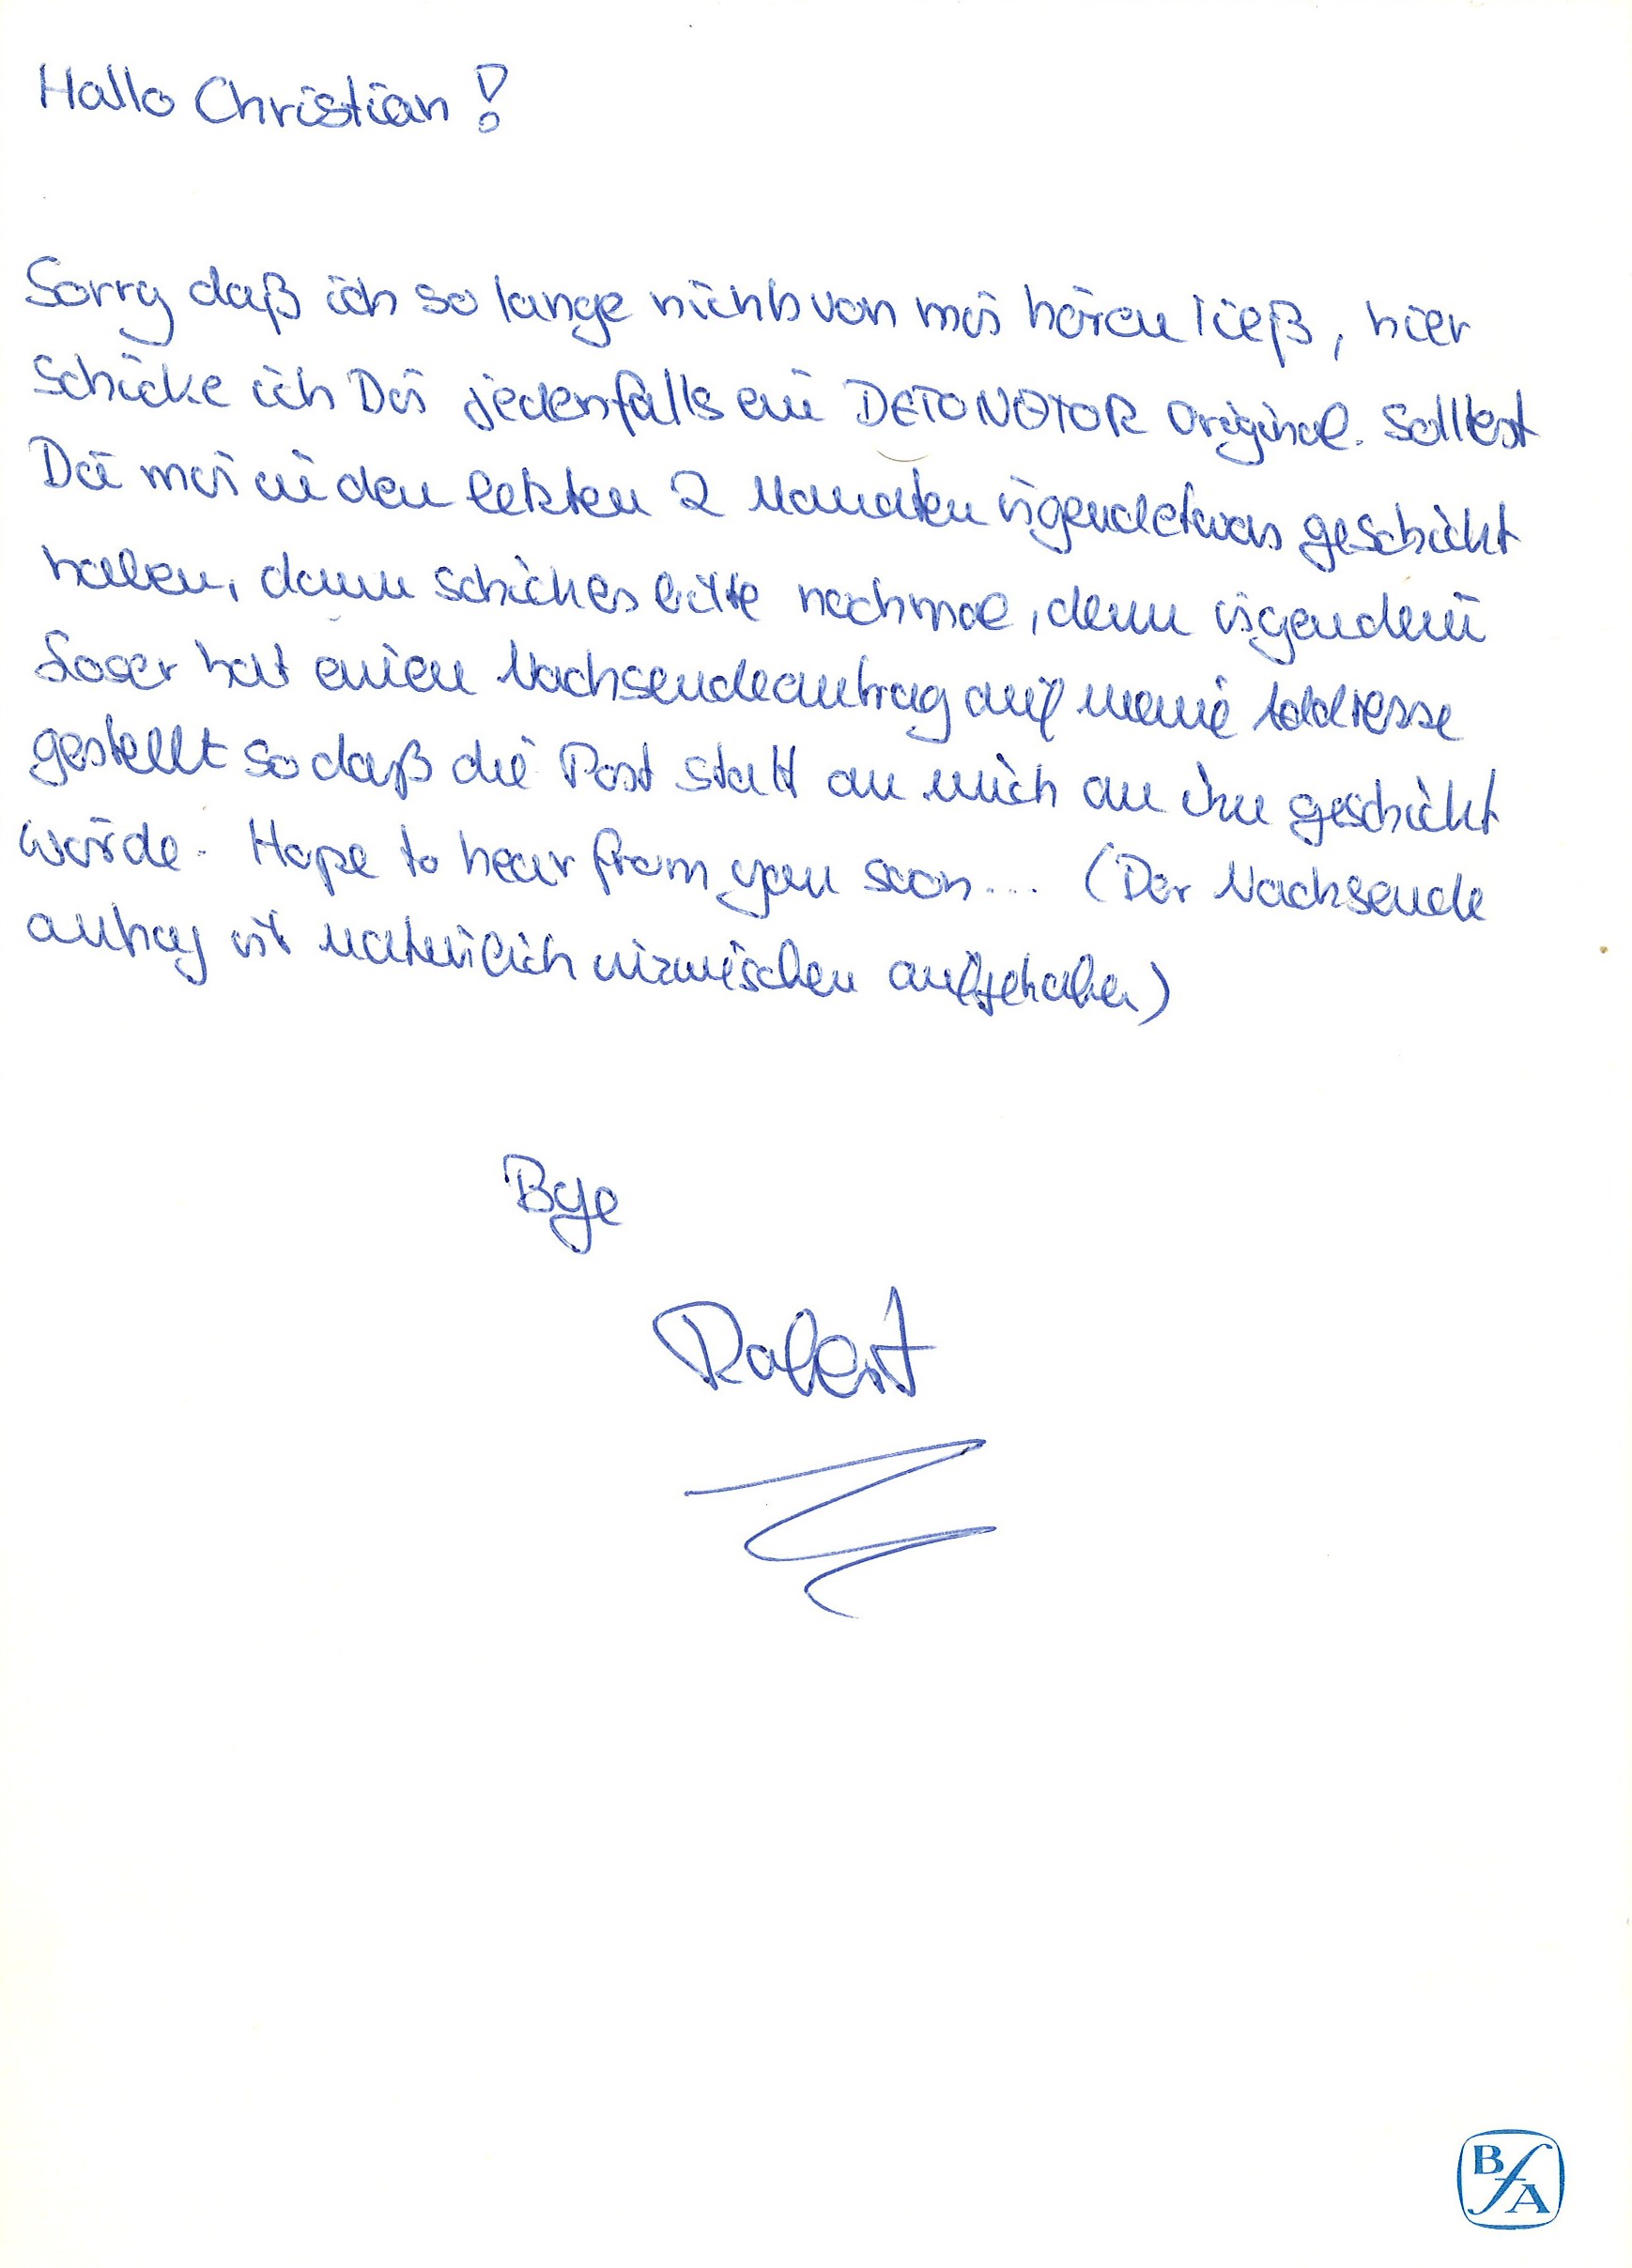 Hallo Christian!
Sorry daß ich so lange nichts von mir hören ließ, hier
schicke ich Dir jedenfalls ein DETONATOR Original. Solltest
Du mir in den letzten 2 Monaten irgendetwas geschickt
haben, dann schick es bitte nochmal, denn irgendein
Loser hat einen Nachsendeantrag auf meine Addresse
gestellt so daß die Post statt an mich an ihn geschickt
würde. Hope to hear from you soon... (Der Nachsende
antrag ist natürlich inzwischen aufgehoben)
Bye
Robert
BfA